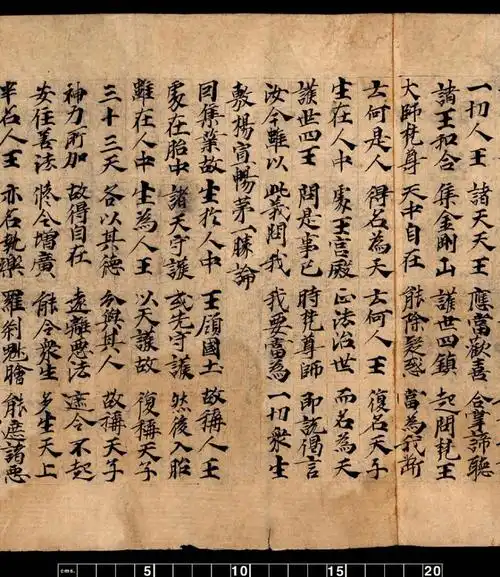 一切人王 諸天天王 應當歡喜 合掌諦聽
諸王和合 集金剛山 護世四鎮 起問梵王
大師梵尊 天中自在 能除疑惑 當為我斷
云何是人 得名為天 云何人王 復名天子
生在人中 處王宮殿 正法治世 而名為天
護世四王 問是事已 時梵尊師 即說偈言
汝今雖以 此義問我 我要當為 一切眾生
敷揚宣暢 第一勝論
因集業故 生於人中 王領國土 故稱人王
處在胎中 諸天守護 或先守護 然後入胎
雖在人中 生為人王 以天護故 復稱天子
三十三天 各以其德 分與其人 故稱天子
神力所加 故得自在 遠離惡法 遮令不起
安住善法 修令增廣 能令眾生 多生天上
半名人王 亦名執樂 羅剎魁膾 能遮諸惡
cms. 5 10 15 20